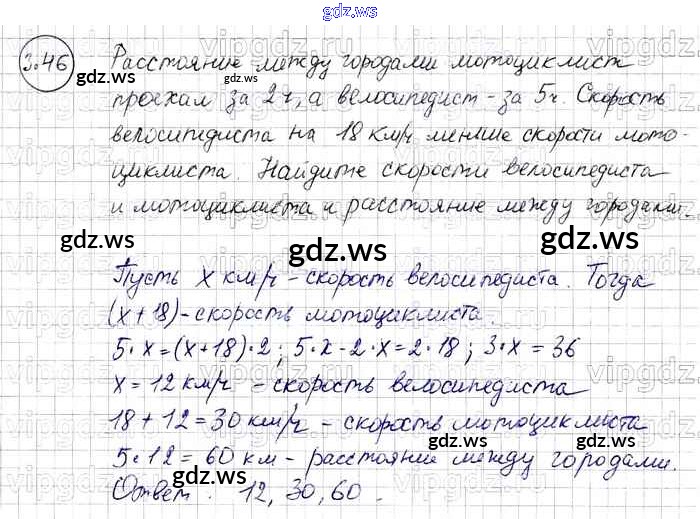 gdz.ws
3.46 Расстояние между городами мотоциклист
проехал за 2 ч, а велосипедист - за 5 ч. Скорость
велосипедиста на 18 км/ч меньше скорости мото-
циклиста. Найдите скорости велосипедиста
и мотоциклиста и расстояние между городами.
Пусть x км/ч - скорость велосипедиста. Тогда
(x+18) - скорость мотоциклиста.
5·x=(x+18)·2; 5·x-2·x=2·18; 3·x=36
x=12 км/ч - скорость велосипедиста
18+12=30 км/ч - скорость мотоциклиста
5·12=60 км - расстояние между городами.
Ответ: 12, 30, 60.